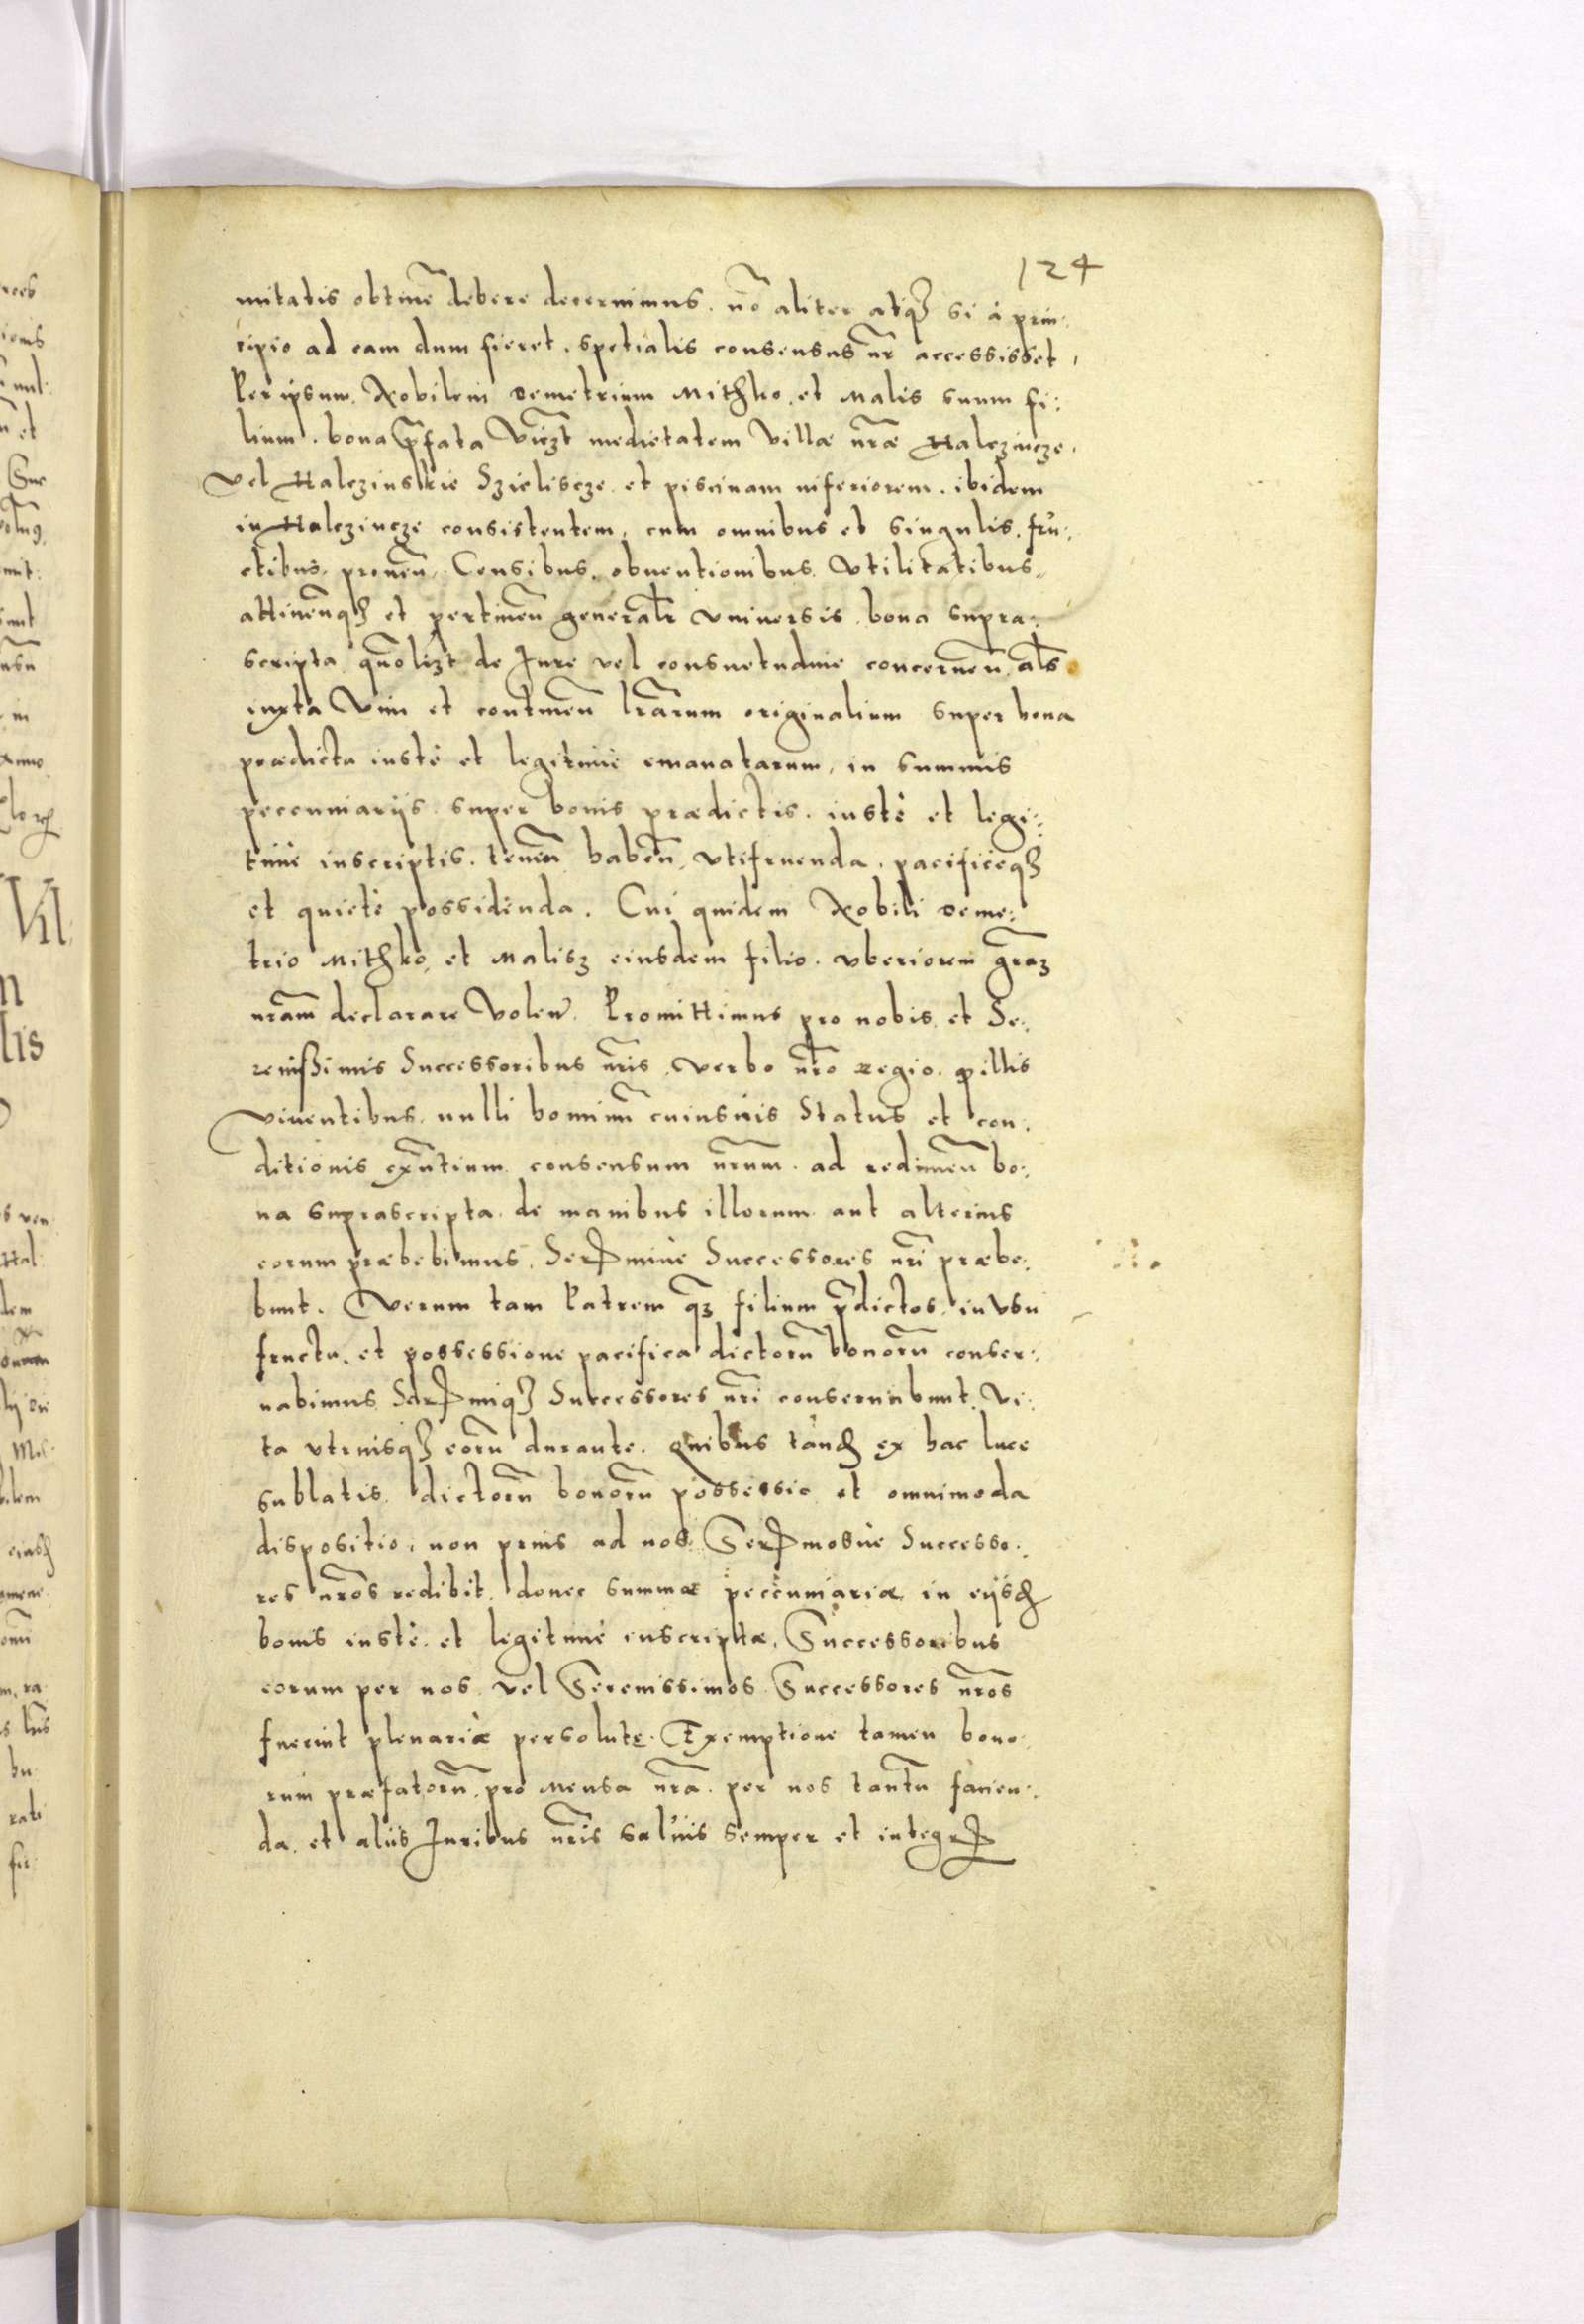 124
mitatis obtinē debere decernimus. nō aliter atq3 si à prin:
cipio ad eam dum fieret. spetialis consensus nr̄ accessisset,
Per ipsum. Nobilem Demetrium Mithko, et Malis suum fi:
lium. bona p̄fata Vi͞czt medietatem Villæ nr̄æ Halczincze,
vel Halczinskie Szielisczе et piscinam inferiorem. ibidem
in Halczincze consistentem, cum omnibus et singulis. fru:
ctibus. prouen̄. Censibus. obuentionibus. Vtilitatibus.
attinen̄q3 et pertinen̄ general̄r vniuersis. bona supra:
scripta quōlizt de Iure vel consuetudine concernen̄, al̄s
iuxta Vim et continen̄ lr̄arum originalium super bona
prædicta iustè et legitimè emanatarum, in summis
peccuniarijs super bonis prædictis. iustè et legi:
timè inscriptis. tenen̄ haben̄, vtifruenda, pacificèq3
et quietè possidenda. Cui quidem Nobili Deme:
trio Mithko, et Malisz eiusdem filio. vberiorem gr̄az
nr̄am declarare Volen̄. Promittimus pro nobis et Se:
renißimis Successoribus nr̄is, verbo nr̄o regio. ꝙ illis
viuentibus. nulli hominū cuiusuis Status et con:
ditionis exn̄tium consensum nr̄um. ad redimen̄ bo:
na suprascripta. de manibus illorum aut alterius
eorum præbebimus. Serꝑmiuè Successores nr̄i præbe:
bunt. Verum tam Patrem q̄3 filium p̄dictos. in vsu
fructu. et possessione pacifica dictorū bonorū conser:
uabimus Serꝑmiq3 Successores nr̄i conseruabunt. Vi:
ta vtriusq3 eorū durante. quibus tandē ex hac luce
sublatis. dictorū bonorū possessio et omnimoda
dispositio, non prius ad nos. Serꝑmosuè Successo:
res nr̄os redibit. donec summæ peccuniariæ in eijsdē
bonis iustè. et legitimè inscriptæ, Successoribus
eorum per nos vel Serenissimos Successores nr̄os
fuerint plenariè persolutę. Exemptione tamen bono:
rum præfatorū. pro Mensa nr̄a. per nos tantū facien:
da. et aliis Iuribus nr̄is saluis semper et integrꝭ